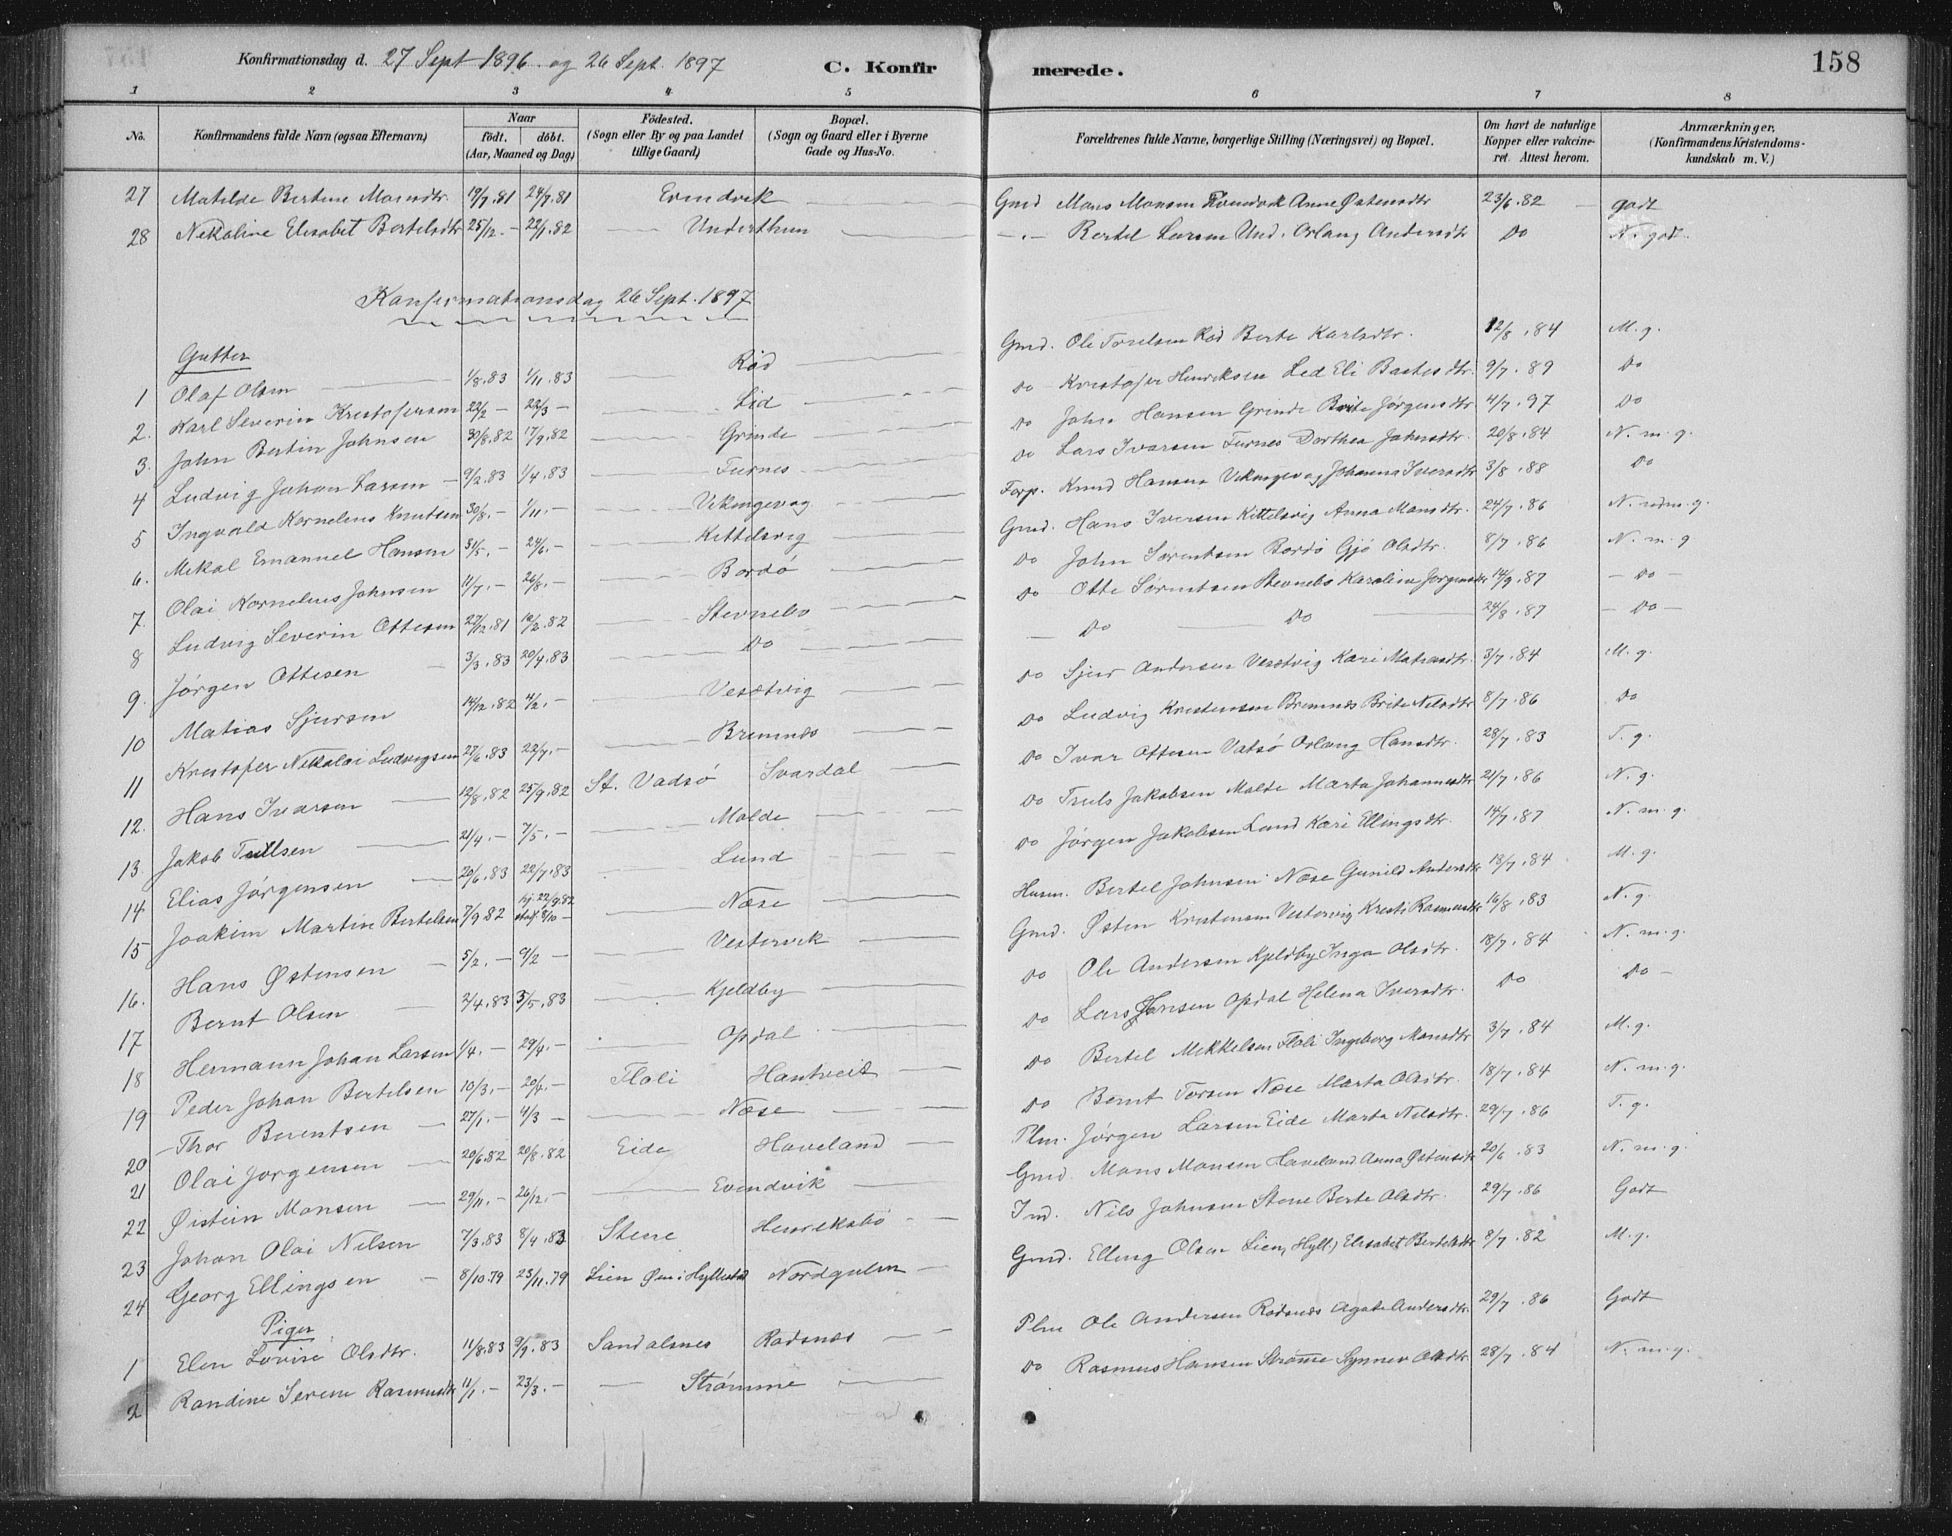 158
Konfirmationsdag d. 27 Sept 1896 og 26 Sept. 1897 C. Konfirmerede.
1 2 3 4 5 6 7 8
No. Konfirmandens fulde Navn (ogsaa Efternavn) Naar født. døbt. (Aar, Maaned og Dag) Fødested. (Sogn eller By og paa Landet tillige Gaard) Bopæl. (Sogn og Gaard eller i Byerne Gade og Hus-No. Forældrenes fulde Navne, borgerlige Stilling (Næringsvei) og Bopæl. Om havt de naturlige Kopper eller vakcineret. Attest herom. Anmærkninger, (Konfirmandens Kristendomskundskab m. V.)
27 Matilde Bertine Monsdtr. 19/7.81 24/7.81 Evendvik Gmd Mons Monsen Evendvik Anne Østensdtr 23/6.82 godt
28 Nikoline Elisabet Bertelsdtr 25/12.- 22/1.82 Underthun -"- Bertel Larsen Und. Orlaug Andersdtr Do N. godt.
Konfirmationsdag 26 Sept. 1897
Gutter
1 Olaf Olsen 1/8.83 1/11.83 Röd Gmd. Ole Röd Berte Karlsdtr. 12/8.84 M.g.
2. Karl Severin Kristofersen 22/2 - 22/3 - Lid Do Kristofer Henriksen Lid Eli dtr. 9/7.89 Do
3. John Bertin Johnsen 30/8.82 17/9.82 Grinde Do John Hansen Grinde Brite Jørgensdtr 4/7.97 Do
4 Ludvig Johan Larsen 9/2.83 1/4.83 Furnes Do Lars Ivarsen Furnes Dorthea Johnsdtr. 20/8.84 N.m.g.
5 Ingvald Kornelius Knutsen 30/8.- 1/11.- Vikingevag Forp. Knud Hansen Vikingevag Johanna Iversdtr 3/8.88 Do
6. Mikal Emanuel Hansen 31/5.- 24/6.- Kittelsvig Gmd. Hans Iversen Kittelsvig Anna Monsdtr. 24/7.86 N. m.g.
7. Olai Kornelius Johnsen 11/7.- 26/8.- Bordö Do John Sørentsen Bordö Gjö Olsdtr. 8/7.86 N.m.g
8 Ludvig Severin Ottesen 27/12.81 12/2.82 Stevnebo Do Otte Sørentsen Stevnebo Karoline Jørgensdtr 14/9.87 - Do -
9. Jørgen Ottesen 3/3.83 20/4.83 Do Do Do 24/8.87 - Do -
10 Matias Sjursen 14/12.82 4/2.- Vesetvig Do Sjur Andersen Vesetvig Kari dtr. 3/7.84 M.g.
11 Kristofer Nikolai Ludvigsen 27/6.83 22/7.- Bremnes Do Ludvig Kristensen Bremnes Brite Nilsdtr 8/7.86 Do
12. Hans Ivarsen 12/8.82 25/9.82 St. Vadsö Svardal Do Ivar Ottesen Vatsö Orlaug Hansdtr. 28/7.83 T.g.
13. Jakob Trulsen 21/4.- 7/5.- Molde Do Truls Jakobsen Molde Marta Johannesdtr 21/7.86 N.g.
14 Elias Jørgensen 20/6.83 22/7.83 Lund Do Jørgen Jakobsen Lund Kari Ellingsdtr. 14/7.87 N.m.g.
15 Joakim Martin Bertelsen 7/9.82 hj. 22/9.82 stadf. 8/10 - Næse Husm. Bertel Johnsen Næse Gunild Andersdtr 18/7.84 M.g.
16. Hans Østensen 5/2.- 9/2 - Vestervik Gmd. Østen Kristensen Vestervig Kristi Rasmusdtr 16/8.83 N.g.
17 Bernt Olsen 2/4.83 3/5.83 Kjeldby Do Ole Andersen Kjeldby Inga Olsdtr. 18/7.84 N.m.g.
18 Hermann Johan Larsen 1/4.- 29/4.- Opdal Do Lars Hansen Opdal Helena Iversdtr. Do Do -
19 Peder Johan Bertelsen 10/3.- 20/4.- Floli Hantveit Do Bertel Mikkelsen Floli Ingeborg Monsdtr 3/7.84 M.g.
20 Thor Berentsen 27/1.- 4/3 - Næse Do Bernt Torsen Næse Marta Olsdtr. 18/7.84 N.m.g.
21 Olai Jørgensen 20/6.82 20/8.82 Eide Haveland Plm. Jørgen Larsen Eide Marta Nilsdtr. 29/7.86 T.g.
22 Øistein Monsen 29/11.- 26/12.- Evendvik Gmd. Mons Monsen Haveland Anna Østensdtr 20/6.83 N.m.g.
23 Johan Olai Nilsen 7/3.83 8/4.83 Stene Henriksbö Ind. Nils Johnsen Stene Berte Olsdtr. 29/7.86 Godt
24 Georg Ellingsen 8/10.79 23/11.79 Lien Øen i Hyllestad Nordgulen Gmd. Elling Olsen Lien, Hyll, Elisabet Bertelsdtr 8/7.82 M.g.
Piger
1 Elen Lovise Olsdtr. 11/8.83 9/9.83 Sandalsnes Radsnes Plm Ole Andersen Radsnes Agate Andersdtr 29/7.86 Godt
2 Randine Serine Rasmusdtr 11/1.- 23/3.- Strømme Do Rasmus Hansen Strømme Synnev Olsdtr 28/7.84 N.m.g.